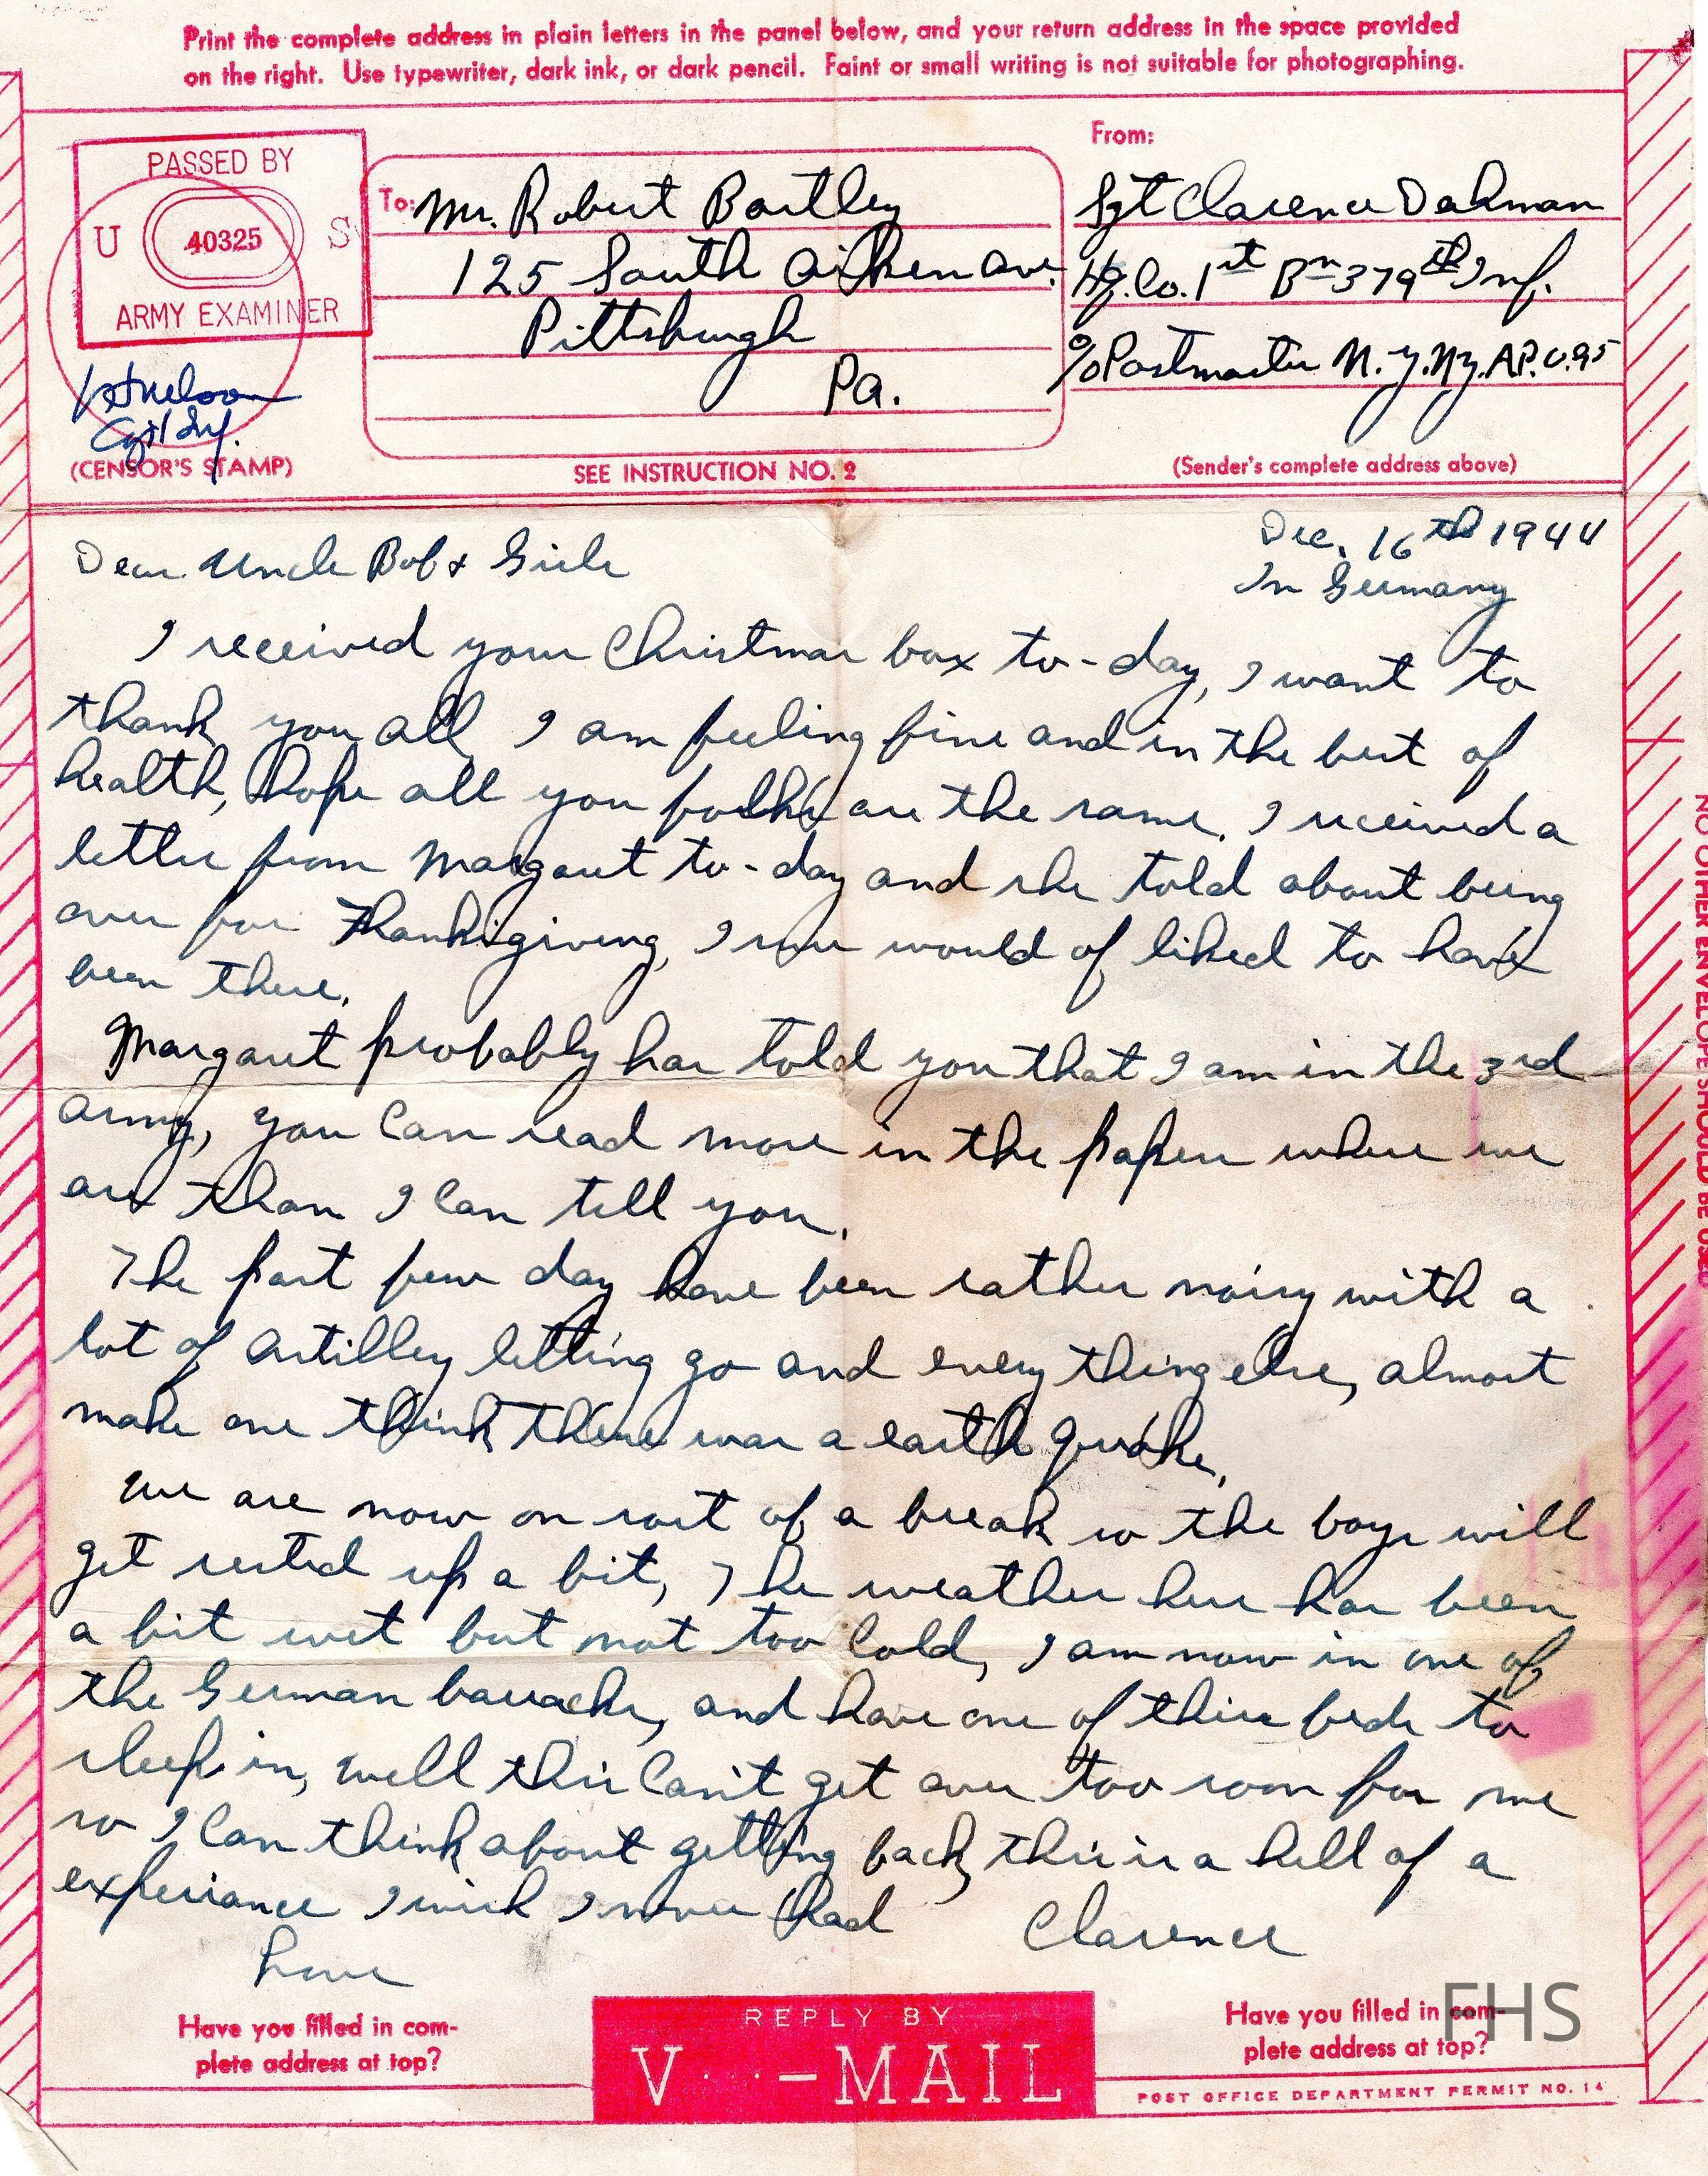 Print the complete address in plain letters in the panel below, and your return address in the space provided
on the right. Use typewriter, dark ink, or dark pencil. Faint or small writing is not suitable for photographing.
PASSED BY
U 40325 S
ARMY EXAMINER
(CENSOR'S STAMP)
To: Mr. Robert Bartley
125 South Aiken Ave.
Pittsburgh
Pa.
SEE INSTRUCTION NO. 2
From:
Sgt Clarence Dahman
Hq. Co. 1st Bn 379th Inf.
% Postmaster N.Y. Ny. A.P.O. 95
(Sender's complete address above)
Dec. 16th 1944
In Germany
Dear Uncle Bob & Girls
I received your Christmas box to-day, I want to
thank you all I am feeling fine and in the best of
health, Hope all you folks are the same. I received a
letter from Margaret to-day and she told about being
over for Thanksgiving, I sure would of liked to have
been there.
Margaret probably has told you that I am in the 3rd
army, you can read more in the papers where we
are than I can tell you.
The past few day have been rather noisy with a
lot of artilley letting go and every thing else, almost
make one think there was a earth quake.
We are now on sort of a break so the boys will
get rested up a bit, The weather here has been
a bit wet but not too cold, I am now in one of
the German barracks, and have one of thire beds to
sleep in, well this can't get over too soon for me
so I can think about getting back, this is a hell of a
experiance I wish I never had
Love
Clarence
Have you filled in com-
plete address at top?
REPLY BY
V · · · – MAIL
Have you filled in com-
plete address at top?
FHS
POST OFFICE DEPARTMENT PERMIT NO. 14
NO OTHER ENVELOPE SHOULD BE USED